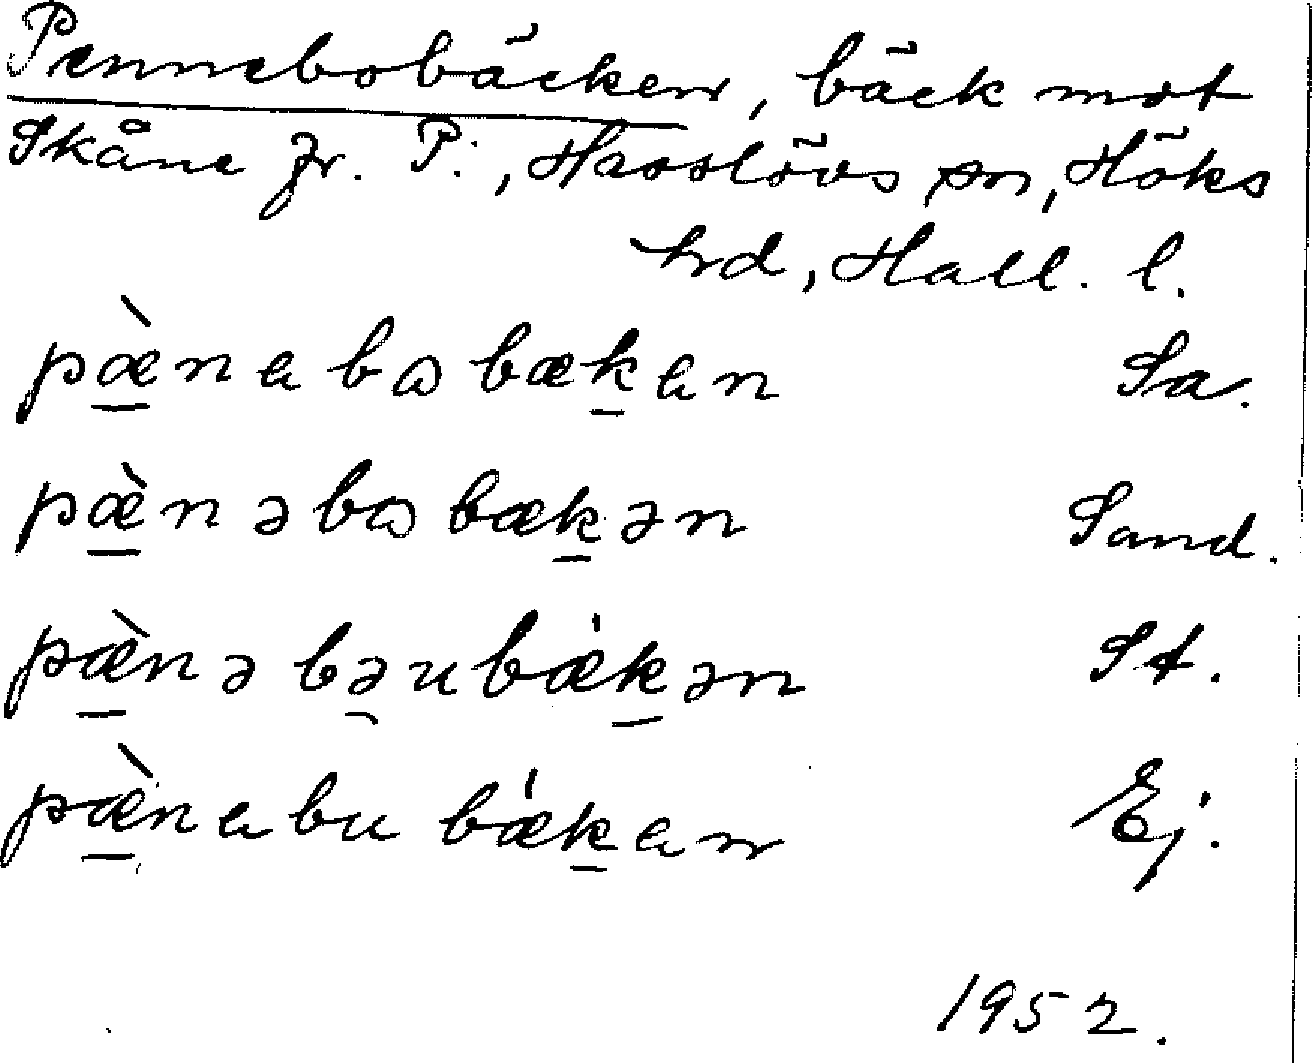 Pennebobäcken, bäck mot
Skåne fr. P., Hasslövs sn, Höks
hrd, Hall. l.
pæ̱̀nabɷbæḵan Sa.
pæ̱̀nəbɷbæḵən Sand.
pæ̱̀nəbəubǽḵən St.
pæ̱̀nabubǽḵan Ej.
1952.